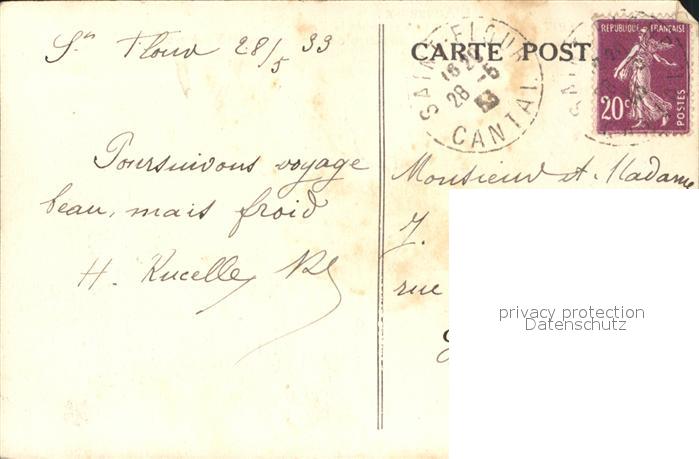 St Flour 28/5 33
CARTE POST
SAINT-FLOUR
28
CANTAL
RÉPUBLIQUE FRANÇAISE
20c
POSTES
Poursuivons voyage
beau, mais froid
H.
Monsieur et Madame
J.
rue
privacy protection
Datenschutz